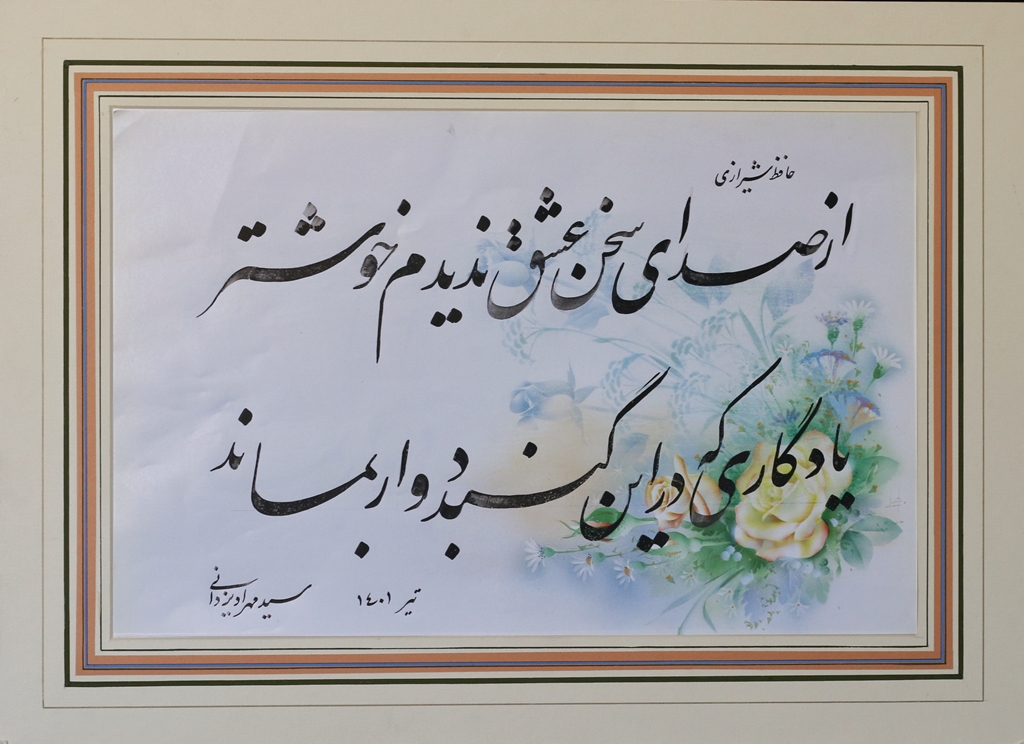 حافظ شیرازی
از صدای سخن عشق ندیدم خوشتر
یادگاری که در این گنبد دوار بماند
تیر ۱۴۰۱
سید مهراد یزدانی